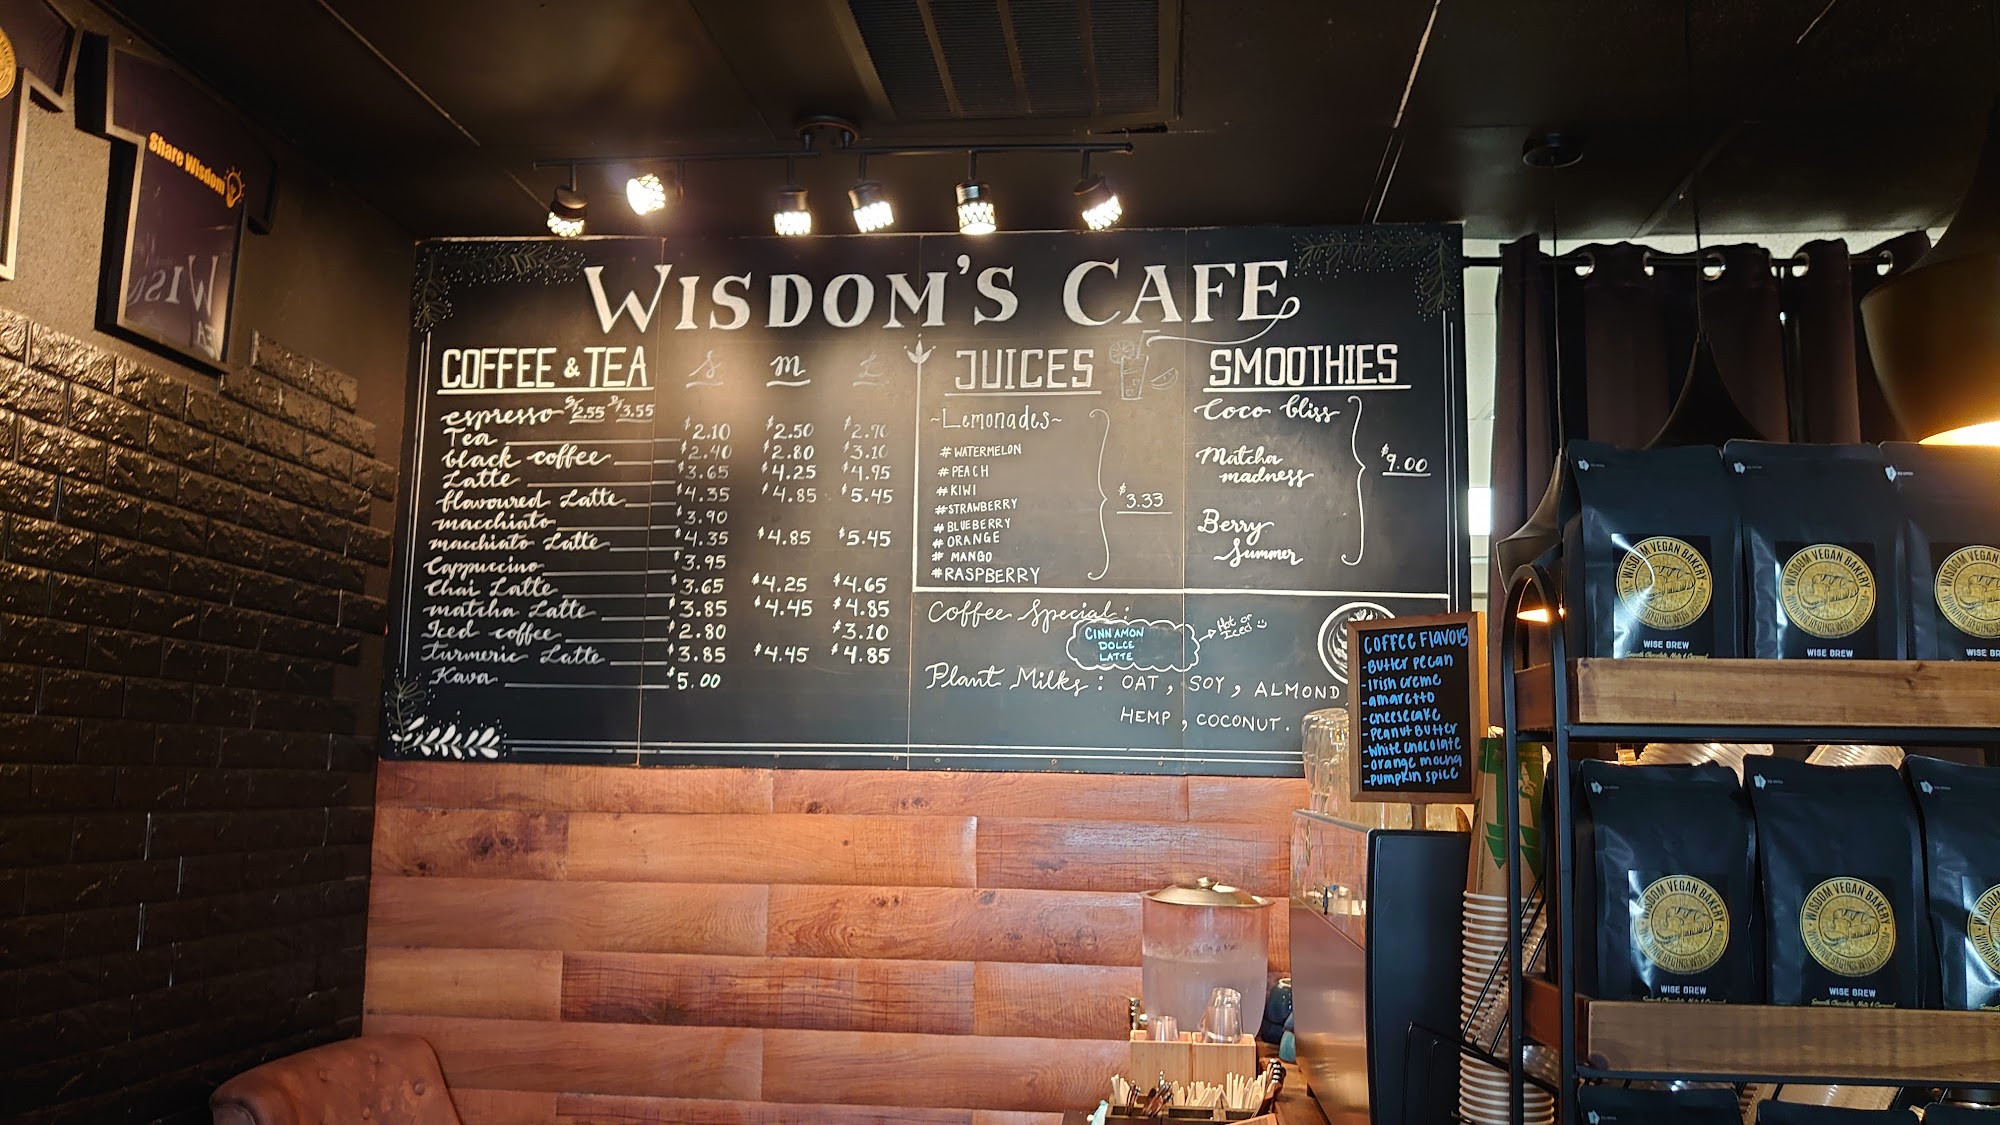 Share Wisdom
WISDOM'S CAFE
COFFEE & TEA S M L
espresso S/ 2.55 D/ 3.55
Tea $2.10 $2.50 $2.90
black coffee $2.40 $2.80 $3.10
Latte $3.65 $4.25 $4.95
flavoured Latte $4.35 $4.85 $5.45
macchiato $3.90
macchiato Latte $4.35 $4.85 $5.45
Cappuccino $3.95
Chai Latte $3.65 $4.25 $4.65
matcha Latte $3.85 $4.45 $4.85
Iced coffee $2.80 $3.10
Turmeric Latte $3.85 $4.45 $4.85
Kava $5.00
JUICES
~Lemonades~
#WATERMELON
#PEACH
#KIWI
#STRAWBERRY
#BLUEBERRY
#ORANGE
# MANGO
#RASPBERRY
$3.33
SMOOTHIES
Coco bliss
Matcha
madness
Berry
Summer
$9.00
Coffee Special:
CINNAMON
DOLCE
LATTE
Hot or
Iced
Plant Milks: OAT, SOY, ALMOND
HEMP, COCONUT.
COFFEE FLAVORS
-BUTTER PECAN
-IRISH CREME
-amaretto
-cheesecake
-PEANUT BUTTER
-WHITE CHOCOLATE
-orange mocha
-PUMPKIN SPICE
WISDOM VEGAN BAKERY
WINNING BEGINS WITH WISDOM
WISE BREW
Smooth Chocolate, Nuts & Caramel
WISDOM VEGAN BAKERY
WINNING BEGINS WITH WISDOM
WISE BREW
WISE B
WISDOM VEGAN BAKERY
WINNING BEGINS WITH WISDOM
WISE BREW
Smooth Chocolate, Nuts & Caramel
WISDOM VEGAN BAKERY
WINNING BEGINS WITH WISDOM
WISE BREW
Smooth Chocolate, Nuts & Caramel